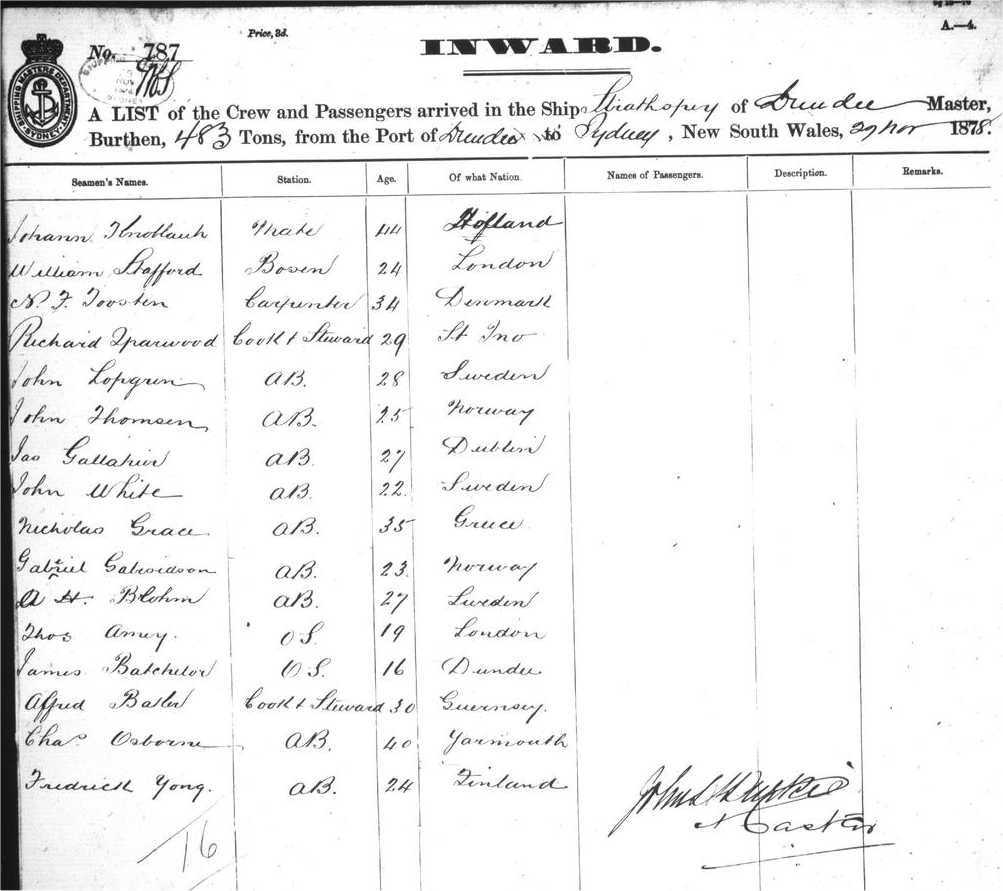 Price, 3d.
A.—4.
No. 787
INWARD.
SHIPPING MASTERS DEPARTMENT SYDNEY
A LIST of the Crew and Passengers arrived in the Ship Strathspey of Dundee Master,
Burthen, 483 Tons, from the Port of Dundee to Sydney, New South Wales, 29 Nov 1878.
Seamen's Names. Station. Age. Of what Nation. Names of Passengers. Description. Remarks.
Johann Knoblauh Mate 44 Holland
William Stafford Bosen 24 London
N. F. Toosten Carpenter 34 Denmark
Richard Sparwood Cook & Steward 29 St
John Lofgren AB. 28 Sweden
John Thomsen AB. 25 Norway
Jas Gallahier AB. 27 Dublin
John White AB. 22 Sweden
Nicholas Grace AB. 35 Greece
Gabriel Gabrielson AB. 23 Norway
A H. Blohm AB. 27 Sweden
Thos Amey. OS. 19 London
James Batchelor OS. 16 Dundee
Alfred Cook & Steward 30 Guernsey.
Chas Osborne AB. 40 Yarmouth
Fredrick Yong. AB. 24 Finland
John
Master
16